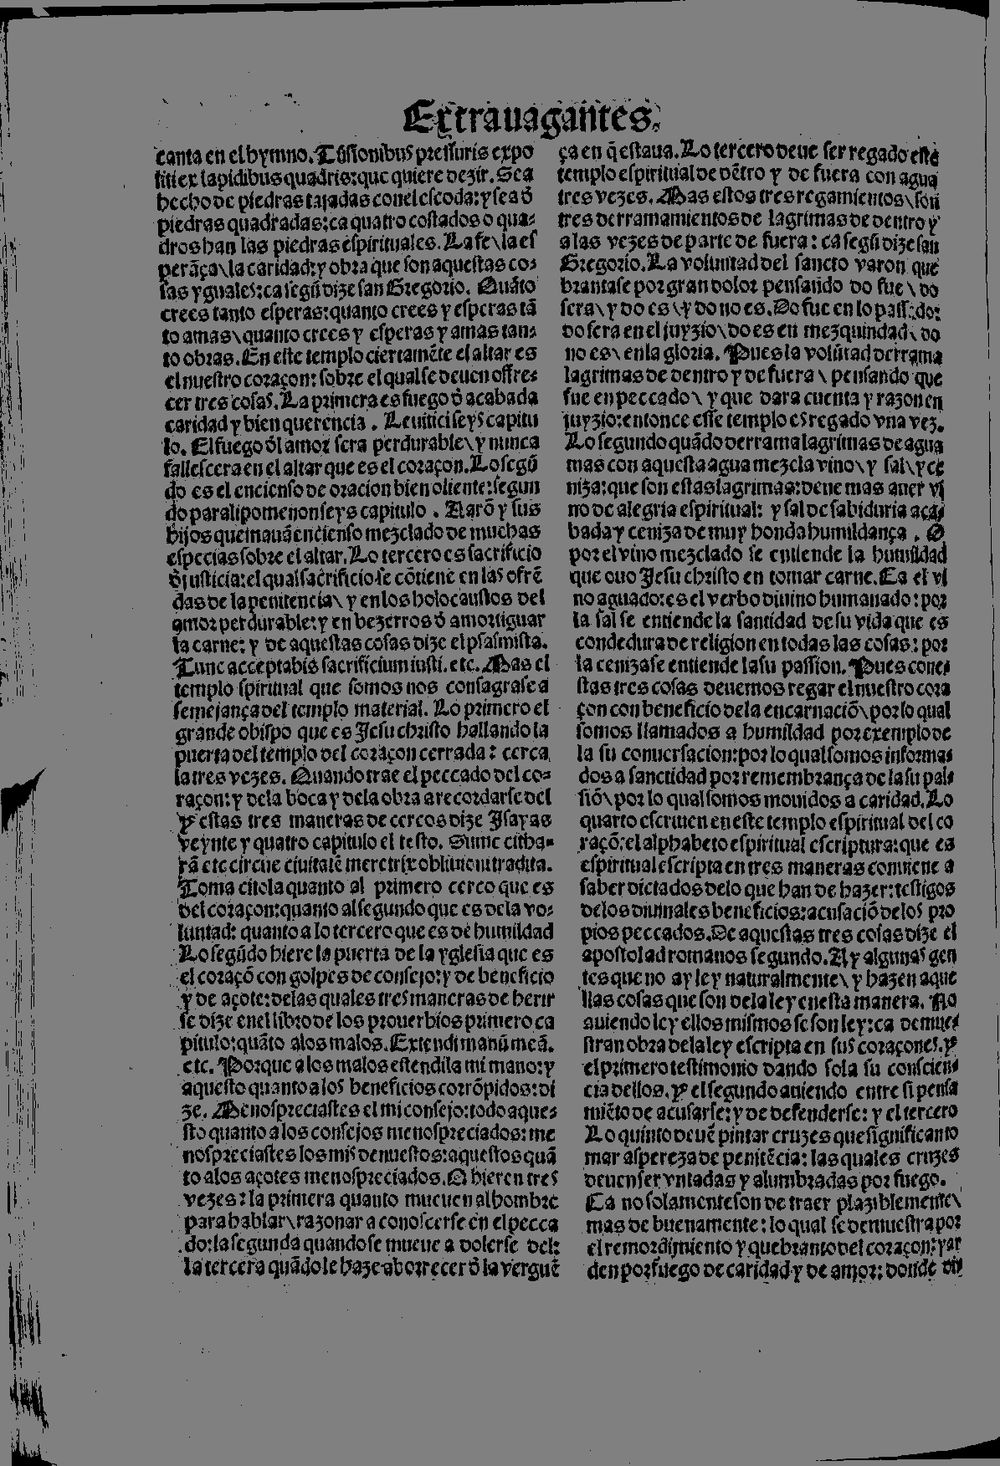 Extrauagantes.
canta en el hymno. Tũsionibus pressuris expo
liti ex lapidibus quadris: que quiere dezir. Sea
hecho de piedras tajadas con el escoda: y sea ð
piedras quadradas: ca quatro costados o qua-
dros han las piedras espirituales. La fe \ la es
perãça \ la caridad: y obra que son aquestas co-
sas yguales: ca segũ dize san Gregorio. Quãto
crees tanto esperas: quanto crees y esperas tã
to amas \ quanto crees y esperas y amas tan-
to obras. En este templo ciertamẽte el altar es
el nuestro coraçon: sobre el qual se deuen offre-
cer tres cosas. La primera es fuego ð acabada
caridad y bien querencia . Leuitici seys capitu
lo. El fuego ðl amor sera perdurable \ y nunca
fallescera en el altar que es el coraçon. Lo segũ
do es el encienso de oracion bien oliente: segun
do paralipomenon seys capitulo . Aarõ y sus
hijos queimauã encienso mezclado de muchas
especias sobre el altar. Lo tercero es sacrificio
ð justicia: el qual sacrificio se cõtiene en las ofrẽ
das de la penitencia \ y en los holocaustos del
amor perdurable: y en bezerros ð amortiguar
la carne: y de aquestas cosas dize el psalmista.
Tunc acceptabis sacrificium iusti. etc. Mas el
templo spiritual que somos nos consagrase a
semejança del templo material. Lo primero el
grande obispo que es Jesu christo hallando la
puerta del templo del coraçon cerrada: cerca
la tres vezes. Quando trae el peccado del co-
raçon: y de la boca y de la obra a recordarse del
Y estas tres maneras de cercos dize Isayas
veynte y quatro capitulo el testo. Sume citha-
rã etc circue ciuitatẽ meretrix obliuioni tradita.
Toma citola quanto al primero cerco que es
del coraçon: quanto al segundo que es de la vo-
luntad: quanto a lo tercero que es de humildad
Lo segũdo hiere la puerta de la yglesia que es
el coraçõ con golpes de consejo: y de beneficio
y de açote: de las quales tres maneras de herir
se dize en el libro de los prouerbios primero ca
pitulo: quãto a los malos. Extendi manũ meã.
etc. Porque a los malos estendi la mi mano: y
aquesto quanto a los beneficios corrõpidos: di
ze. Menospreciastes el mi consejo: todo aque-
sto quanto a los consejos menospreciados: me
nospreciastes los mis denuestos: aquestos quã
to a los açotes menospreciados. O hieren tres
vezes: la primera quanto mueuen al hombre
para hablar \ razonar a conoscerse en el pecca
do: la segunda quando se mueue a dolerse del:
la tercera quãdo le haze aborrecer ð la verguẽ
ça en q̃ estaua. Lo tercero deue ser regado este
templo espiritual de dẽtro y de fuera con agua
tres vezes. Mas estos tres regamientos \ son
tres derramamientos de lagrimas de dentro y
a las vezes de parte de fuera: ca segũ dize san
Gregorio. La voluntad del sancto varon que
brantase por gran dolor pensando do fue \ do
sera \ y do es \ y do no es. Do fue en lo passado:
do sera en el juyzio \ do es en mezquindad \ do
no es \ en la gloria. Pues la volũtad derrama
lagrimas de dentro y de fuera \ pensando que
fue en peccado \ y que dara cuenta y razon en
juyzio: entonce esse templo es regado vna vez.
Lo segundo quãdo derrama lagrimas de agua
mas con aquesta agua mezcla vino \ y sal \ y ce
niza: que son estas lagrimas: deue mas auer vi
no de alegria espiritual: y sal de sabiduria aca-
bada y ceniza de muy honda humildança . O
por el vino mezclado se entiende la humildad
que ouo Jesu christo en tomar carne. Ca el vi
no aguado: es el verbo diuino humanado: por
la sal se entiende la santidad de su vida que es
condedura de religion en todas las cosas: por
la ceniza se entiende la su passion. Pues cone-
stas tres cosas deuemos regar el nuestro cora
çon con beneficio de la encarnaciõ \ por lo qual
somos llamados a humildad por exemplo de
la su conuersacion: por lo qual somos informa-
dos a sanctidad por remembrança de la su pas-
siõ \ por lo qual somos mouidos a caridad. Lo
quarto escriuen en este templo espiritual del co
raçõ: el alphabeto espiritual escriptura: que es
espiritual escripta en tres maneras conuiene a
saber dictados de lo que han de hazer: testigos
de los diuinales beneficios: acusaciõ de los pro
pios peccados. De aquestas tres cosas dize el
apostol ad romanos segundo. Ay algunas gen
tes que no ay ley naturalmente \ y hazen aque
llas cosas que son de la ley en esta manera. No
auiendo ley ellos mismos se son ley: ca demue-
stran obra de la ley escripta en sus coraçones. Y
el primero testimonio dando sola su conscien-
cia dellos. Y el segundo auiendo entre si pensa
miẽto de acusarse: y de defenderse: y el tercero
Lo quinto deuẽ pintar cruzes que significan to
mar aspereza de penitẽcia: las quales cruzes
deuen ser vntadas y alumbradas por fuego.
Ca no solamente son de traer plaziblemente \
mas de buenamente: lo qual se demuestra por
el remordimiento y quebranto del coraçon: y ar
den por fuego de caridad y de amor: donde